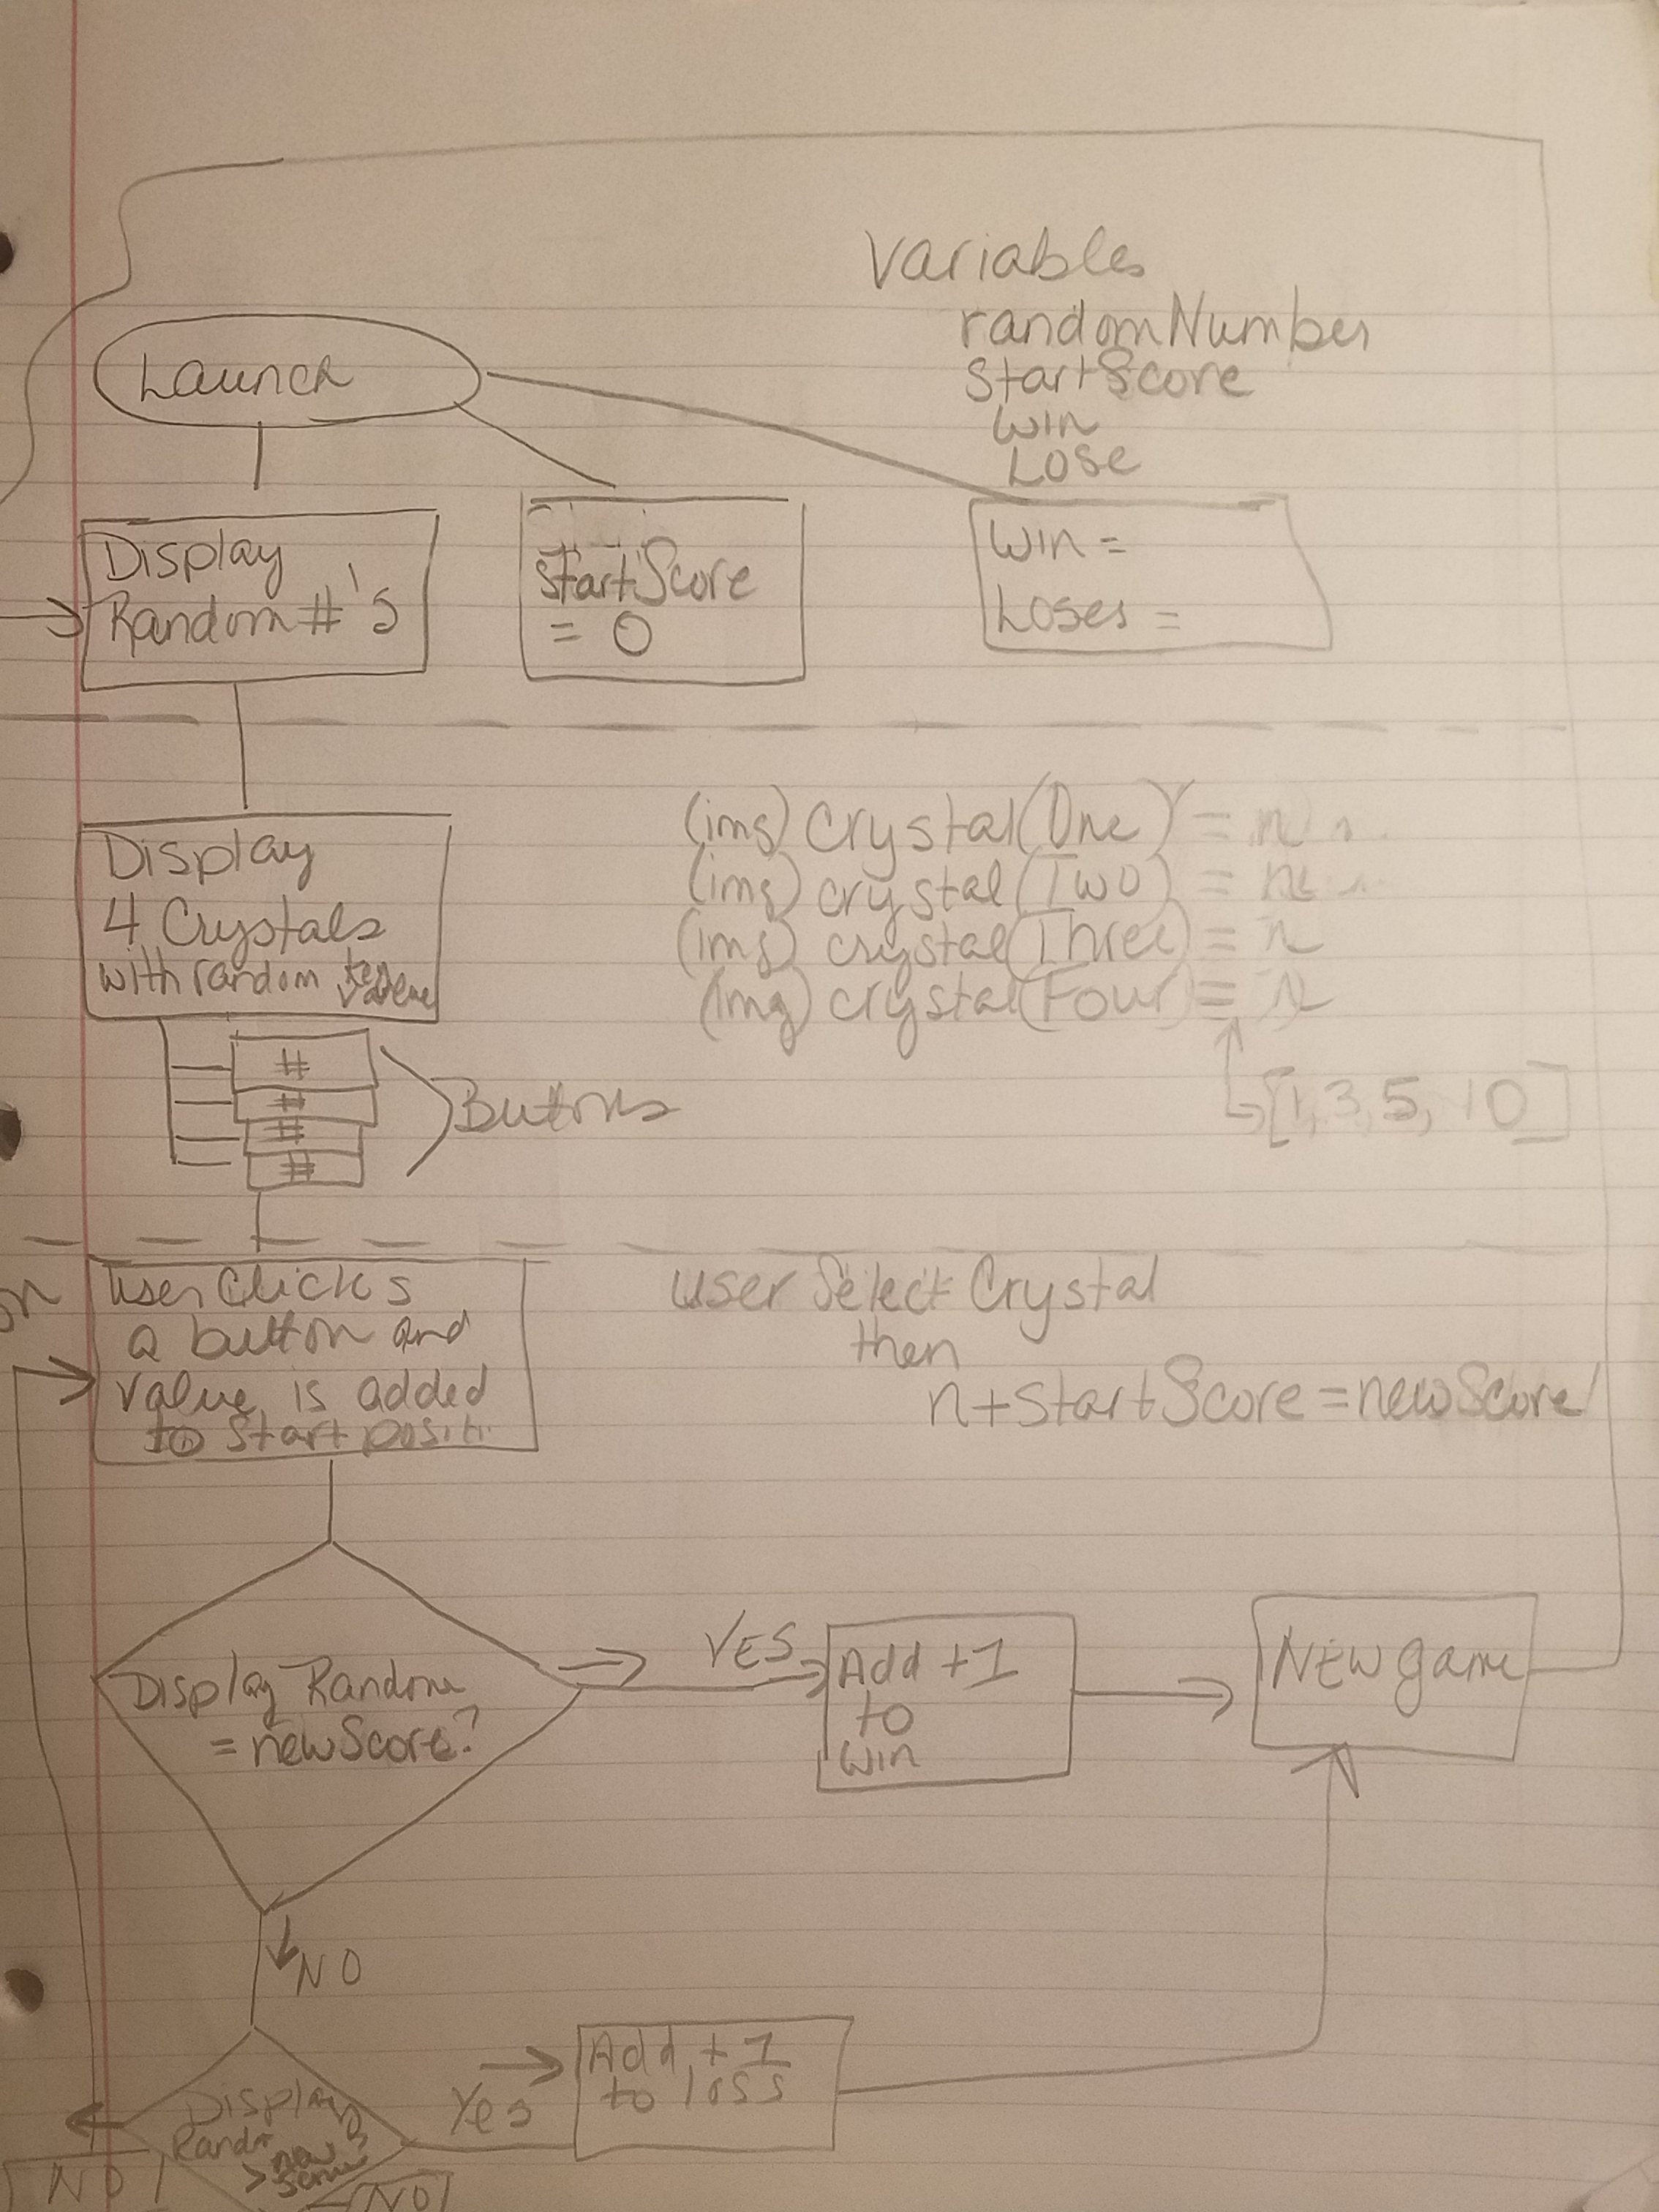 Variables
randomNumber
startScore
win
Lose
Launch
Display
Random #'s
startScore
= 0
Win =
Loses =
Display
4 Crystals
with random
#
#
#
#
Buttons
(img) Crystal(One) = n
(img) crystal(Two) = n
(img) crystal(Three) = n
(img) crystal(Four) = n
[1,3,5, 10]
User Clicks
a button and
value is added
to start positi
User Select Crystal
then
n+startScore=newScore
Display Random
= newScore?
YES
Add +1
to
win
New game
NO
Display
Rand
> new
Score?
Yes
Add +1
to loss
NO
NO